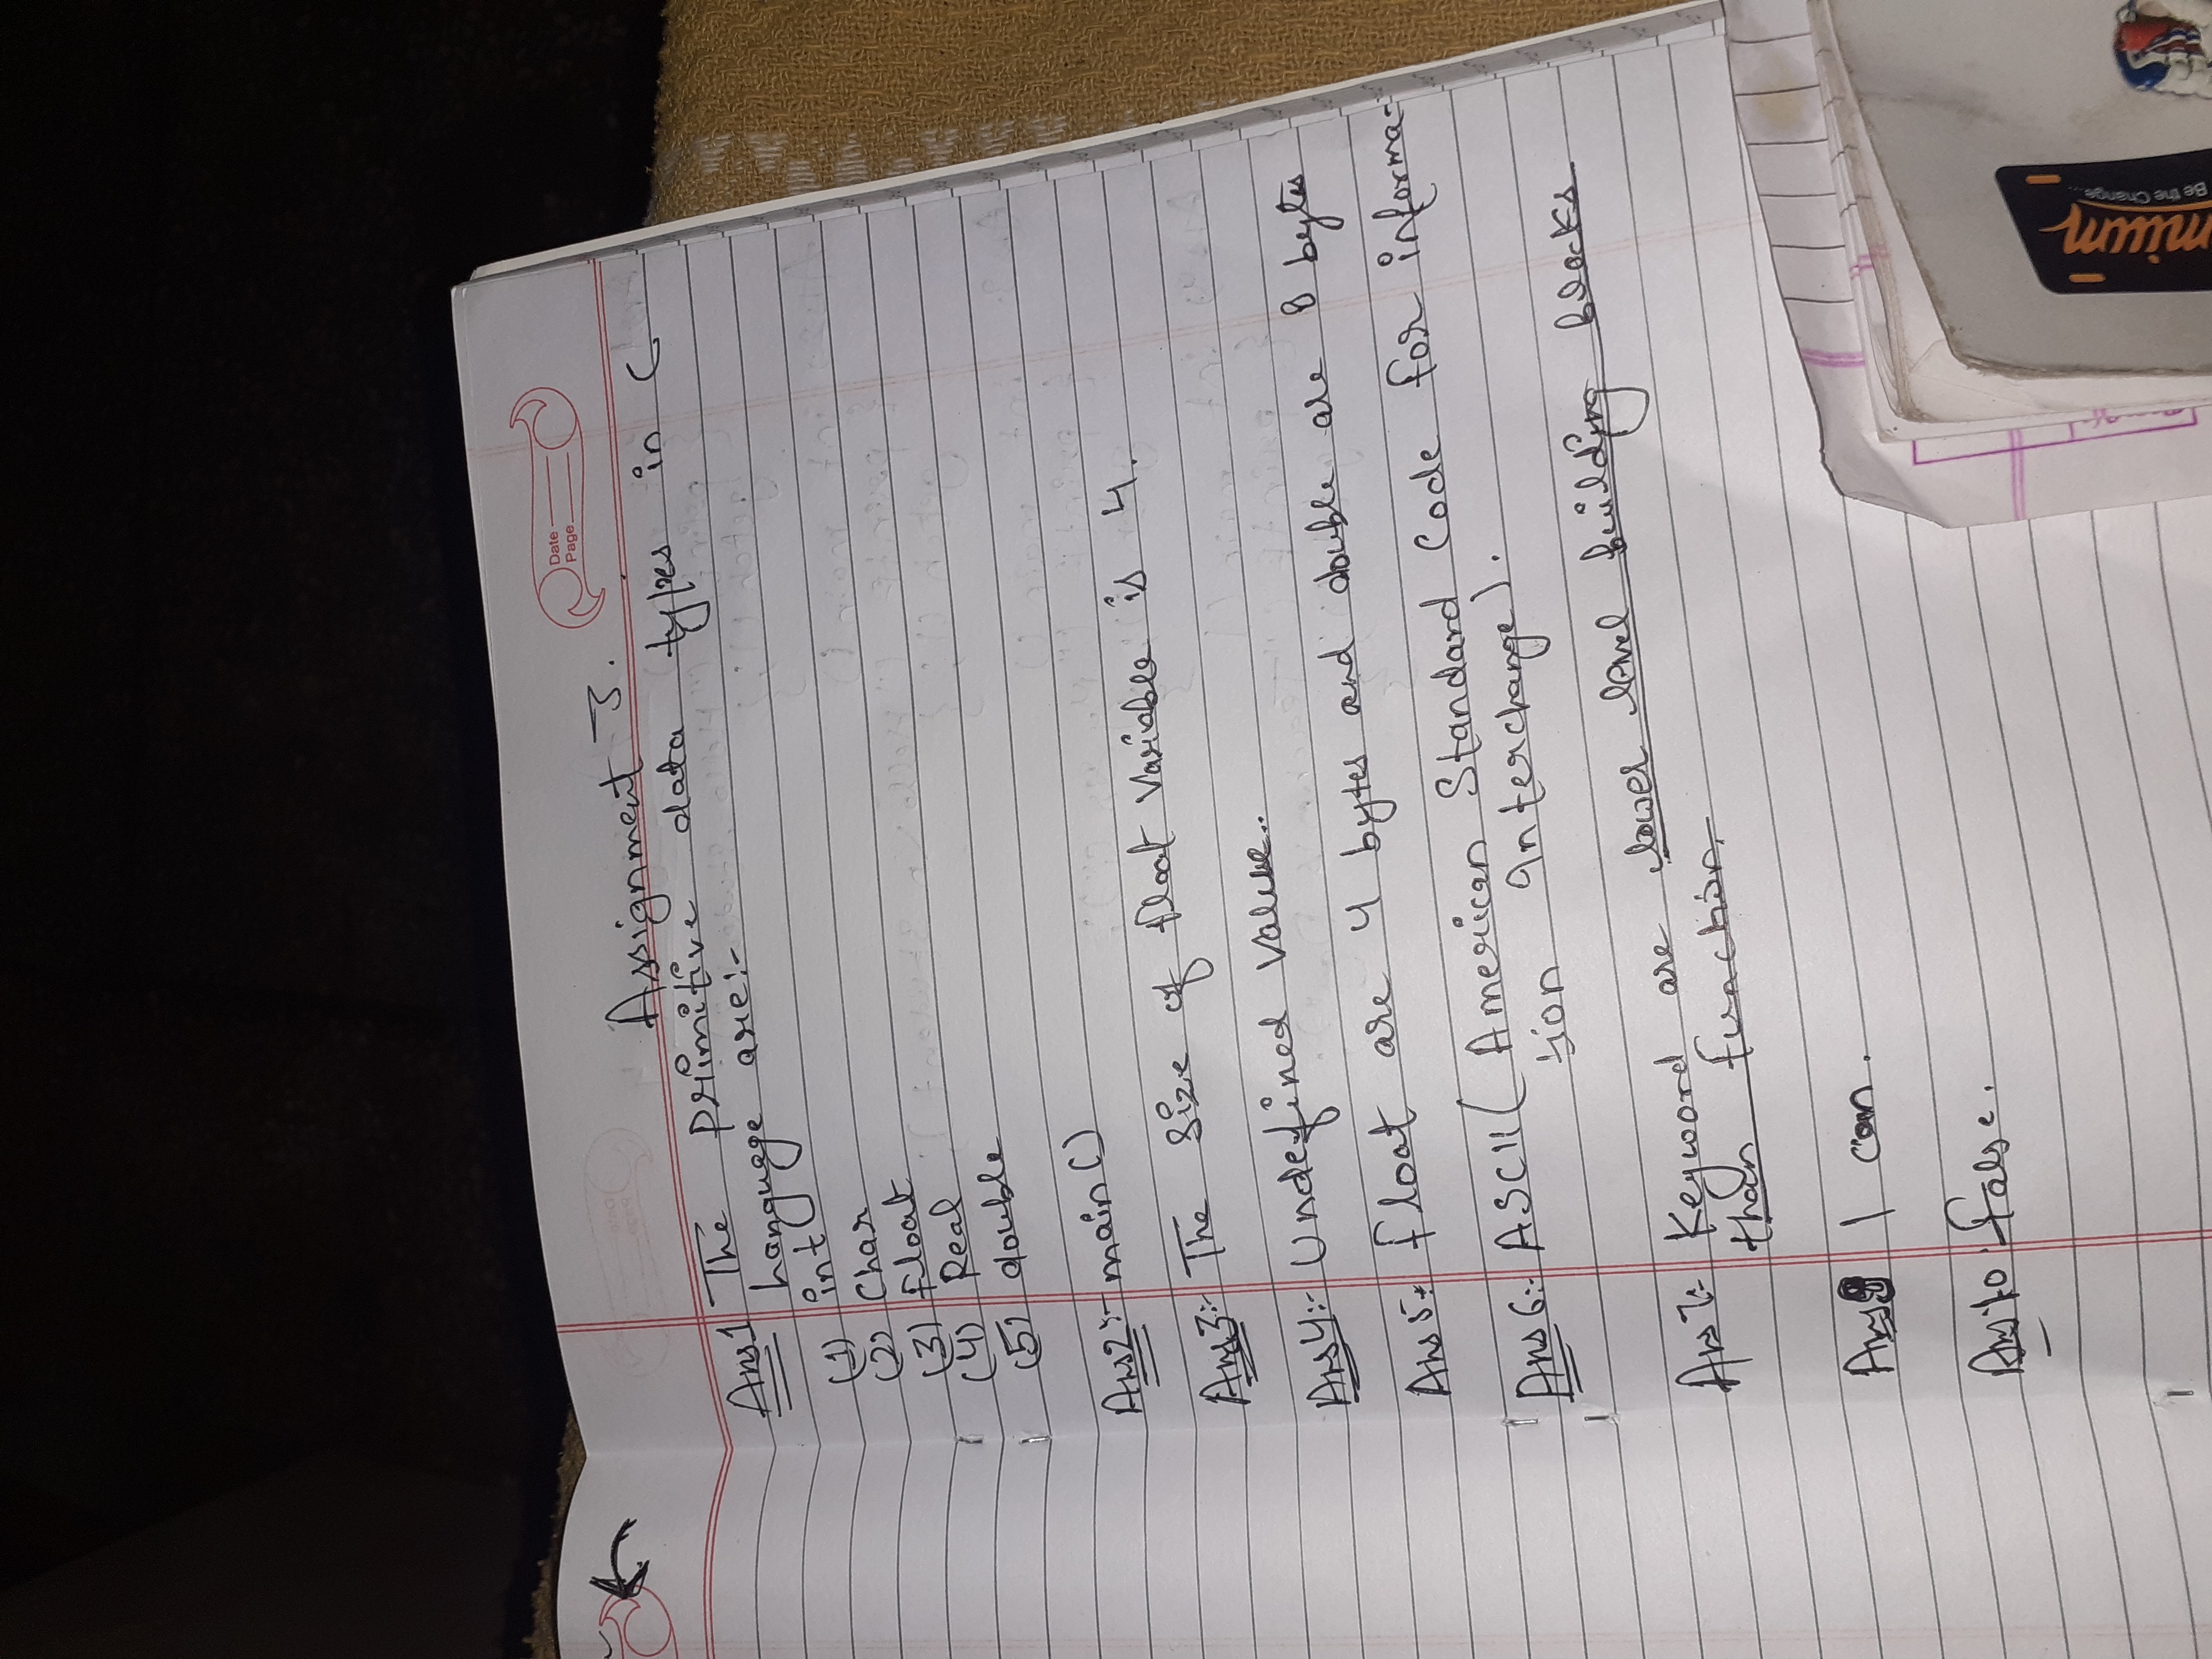 Date
Page
Assignment 3.
Ans1 The primitive data types in C
language are:-
(1) int
(2) Char
(3) float
(4) Real
(5) double
Ans2:- main()
Ans3:- The size of float Variable is 4.
Ans4:- Undefined Value..
Ans 5:- float are 4 bytes and double are 8 bytes
Ans 6:- ASCII ( American Standard Code for informa-
tion Interchange).
Ans 7:- Keyword are lower level building blocks
than function.
Ans9 I can.
Ans10 false.
mium
Be the Change...